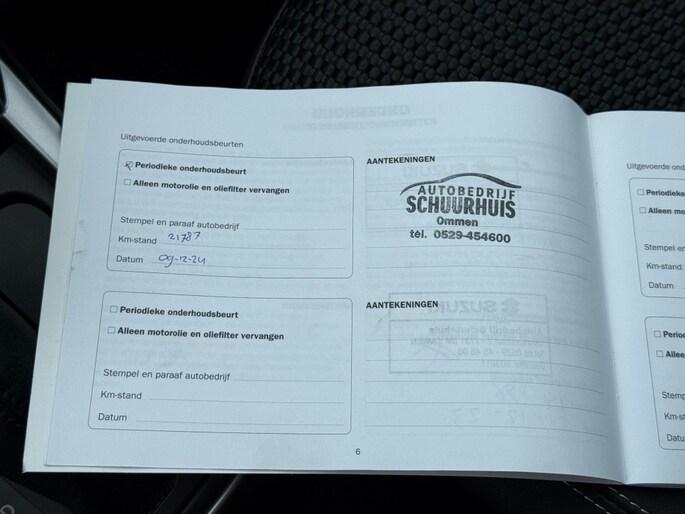 Uitgevoerde onderhoudsbeurten
Periodieke onderhoudsbeurt
Alleen motorolie en oliefilter vervangen
Stempel en paraaf autobedrijf
Km-stand 21787
Datum 09-12-24
AANTEKENINGEN
AUTOBEDRIJF
SCHUURHUIS
Ommen
tel. 0529-454600
Periodieke onderhoudsbeurt
Alleen motorolie en oliefilter vervangen
Stempel en paraaf autobedrijf
Km-stand
Datum
AANTEKENINGEN
6
Uitgevoerde on
Periodieke
Alleen mo
Stempel en
Km-stand
Datum
Perio
Allee
Stemp
Km-st
Datum